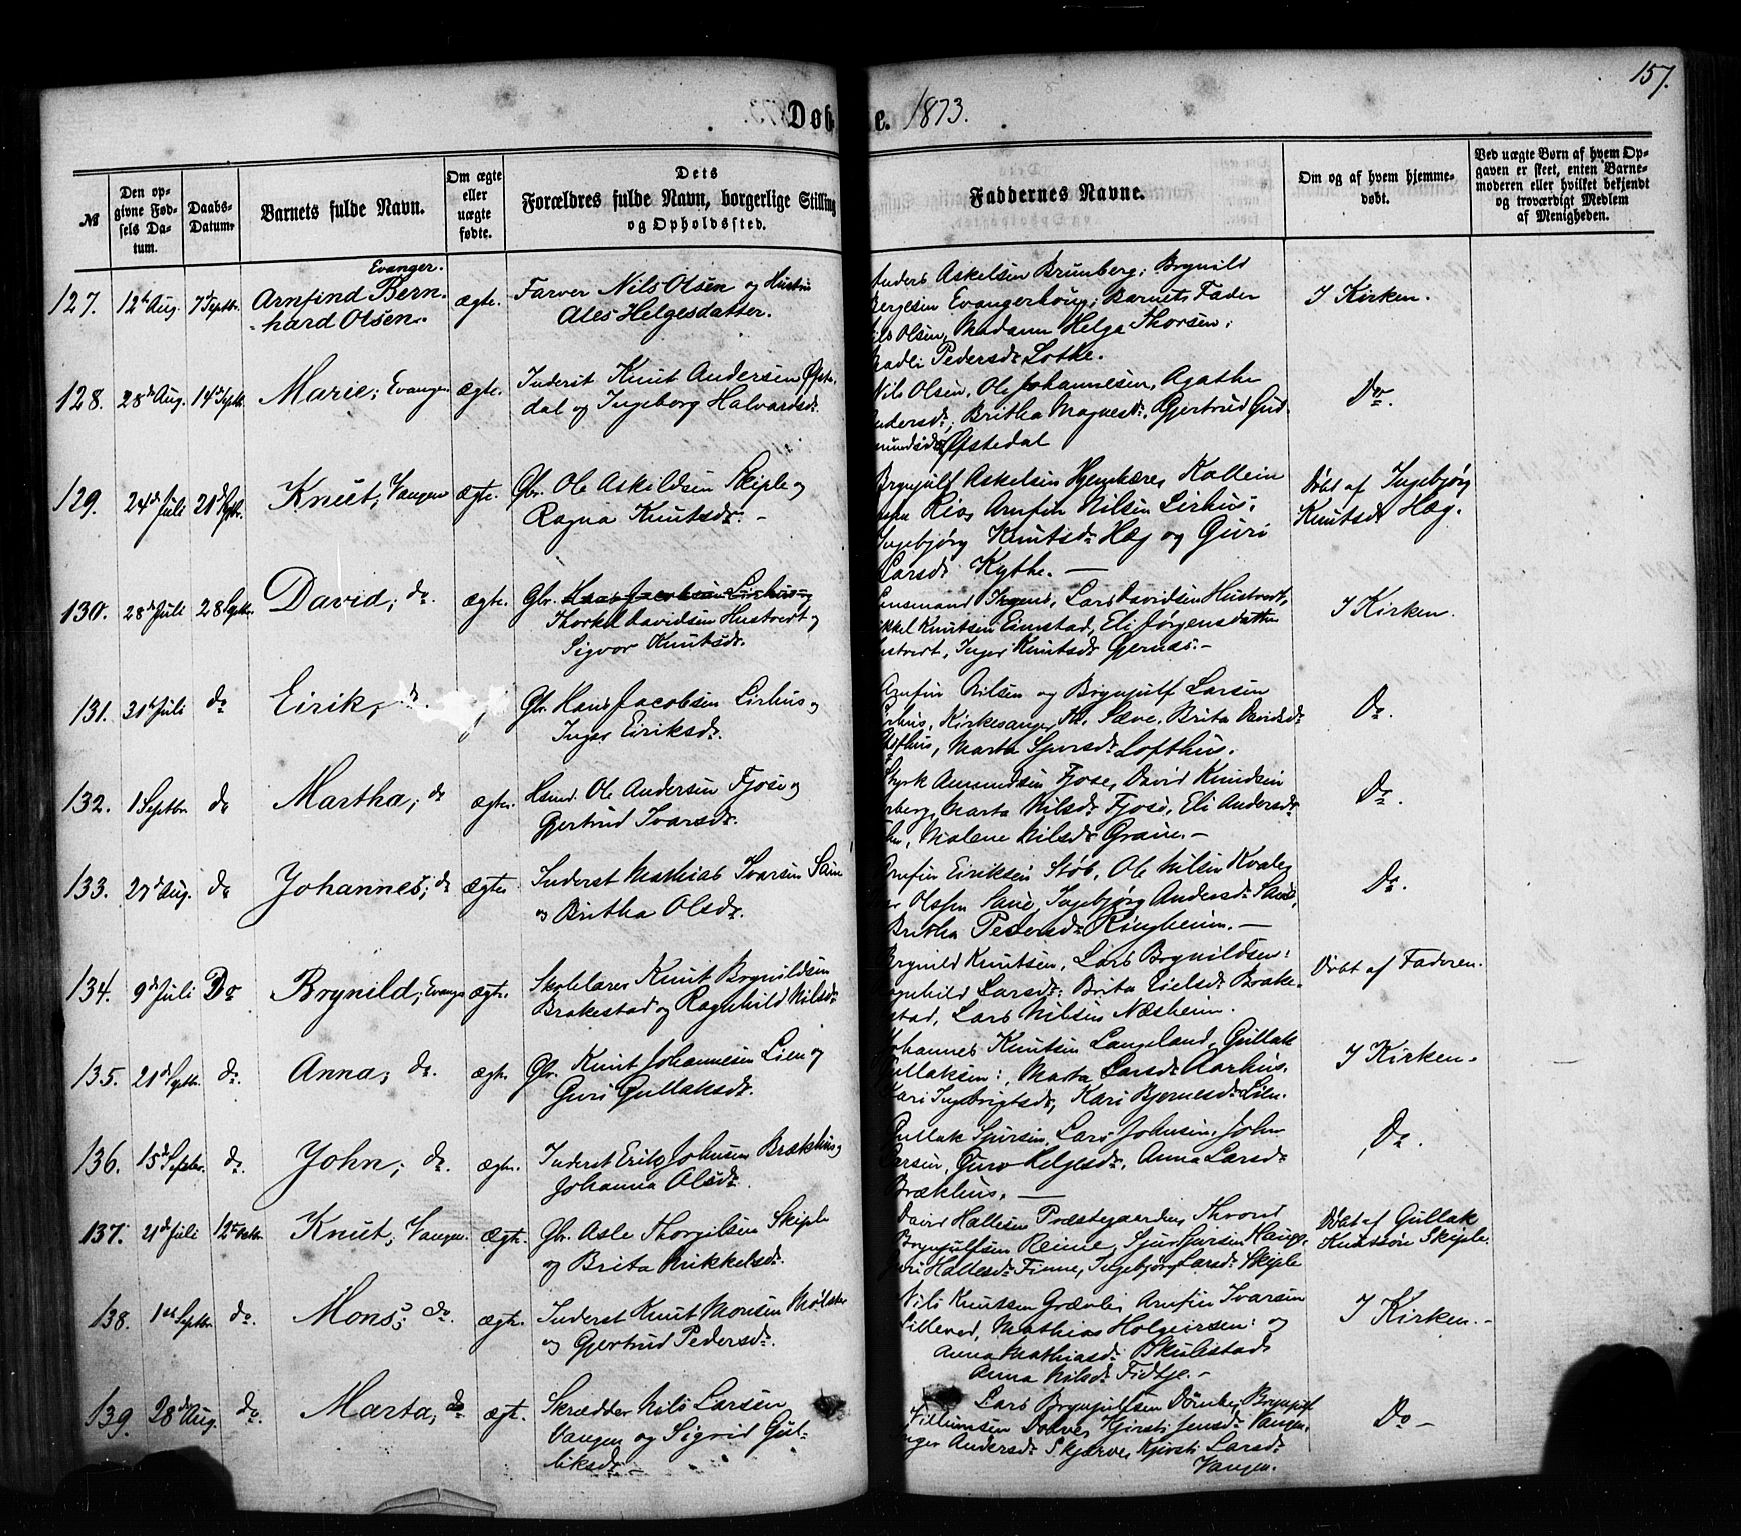 157.
Døb e. 1873.
№
Den opgivne Fødsels Datum.
Daabs-Datum.
Barnets fulde Navn.
Om ægte eller uægte fødte.
Dets Forældres fulde Navn, borgerlige Stilling og Opholdssted.
Faddernes Navne.
Om og af hvem hjemmedøbt.
Ved uægte Børn af hvem Opgaven er skeet, enten Barnemoderen eller hvilket bekjendt og troværdigt Medlem af Menigheden.
Evanger.
127. 12te Aug. 7de Septbr. Arnfind Bern-
hard Olsen. ægte. Farver Nils Olsen og Hustru
Ales Helgesdatter.
Anders Askelsen Brunberg; Brynild
Bergesen Evangerhoug; Barnets Fader
Nils Olsen, Madam Helga Thorsen;
Pedersdr Lothe.
I Kirken.
128. 28de Aug. 14de Septbr. Marie; Evanger ægte. Inderst Knut Andersen Øfste-
dal og Ingeborg Halvardsdr.
Nils Olsen, Ole Johannesen, Agathe
Andersdr; Britha Magnesdr. Gjertrud Gud-
mundsdr Øfstedal
Do.
129. 24de Juli 21de Septbr. Knut; Vangen ægte. Gbr. Ole Askildsen Skiple og
Ragna Knutsdr. -
Brynjulf Askelsen Kollein
Rio, Arnfin Nilsen Lirhus.
Ingebjørg Knutsdr Hæg og Guri
Larsdr Kythe. -
Døbt af Ingebjørg
Knutsdr Hæg.
130. 28de Juli 28 Septbr. David; do. ægte. Gbr. Hans Jacobsen Lirhus og
Thorkel Davidsen Hustveit og
Sigvor Knutsdr.
Lensmand Irgens, Lars Davidsen Hustveit,
Mikkel Knutsen Eimstad, Eli Jørgensdatter
Hustveit, Inger Knutsdr Gjernæs. -
I Kirken.
131. 31te Juli do Eirik, do. Gbr. Hans Jacobsen Lirhus og
Inger Eiriksdr.
Arnfin Nilsen og Brynjulf Larsen
Lirhus, Kirkesanger Th. Sæve, Brita Davidsdr
Marta Sjursdr Lofthus.
Do.
132. 1 Septbr do Martha; do ægte. Hsmd. Ole Andersen Fjose og
Gjertrud Ivarsdr.
Styrk Amundsen Fjose, David Knudsen
Marta Nilsdr Fjose, Eli Andersdr
Malene Nilsdr Graue. -
Do.
133. 27de Aug. do Johannes; do ægte Inderst Mathias Ivarsen Saue
og Britha Olsdr.
Arnfin Eiriksen Støb, Ole Nilsen Kvale
Olsen Saue, Ingebjørg Andersdr Saue,
Britha Pedersdr Ringheim. -
Do.
134. 9de Juli Do Brynild; Evanger ægte. Skolelærer Knut Brynildsen
Brakestad og Ragnhild Nilsdr
Brynild Knutsen, Lars Brynildsen;
Ragnhild Larsdr; Brita Eielsdr Brake-
stad, Lars Nilsen Næsheim.
Døbt af Faderen.
135. 21de Septbr. do. Anna; do. ægte. Gbr. Knut Johannesen Lien og
Guri Gullaksdr.
Johannes Knutsen Langeland, Gullak
Gullaksen; Marta Larsdr Aarhus,
Kari Ingebrigtsdr, Kari Bjørnesdr Lien.
I Kirken.
136. 15de Septbr. do. John; do. ægte. Inderst Erik Johnsen Brækhus og
Johanna Olsdr.
Gullak Sjursen, Lars Johnsen, John
Larsen, Guro Helgesdr, Anna Larsdr
Brækhus. -
Do.
137. 21de Juli 12te Oktbr. Knut; Vangen. ægte. Gbr. Asle Thorgilsen Skiple
og Brita Mikkelsdr.
David Hallesen Præstegaarden, Thrond
Brynjulfsen Reime, Sjur Sjursen Haug,
Guri Hallesdr Finne, Ingebjørg Larsdr Skiple
Døbt af Gullak
Knutsøn Skiple.
138. 1ste Septbr. do. Mons; do. ægte. Inderst Knut Monsen Mølster
og Gjertrud Pedersdr.
Nils Knutsen Grævle, Arnfin Ivarsen
Lillered, Mathias Holgeirsen; og
Anna Mathiasdr Skulestad,
Anna Nilsdr Fidtje. -
I Kirken. -
139. 28de Aug. do. Marta; do ægte. Skrædder Nils Larsen
Vangen og Sigrid Gul-
liksdr -
Lars Brynjulfsen Dørke, Brynjulf
Villumsen Dolve, Kjersti Jensdr Vangen,
Inger Andersdr Skjerve, Kjersti Larsdr
Vangen.
Do -